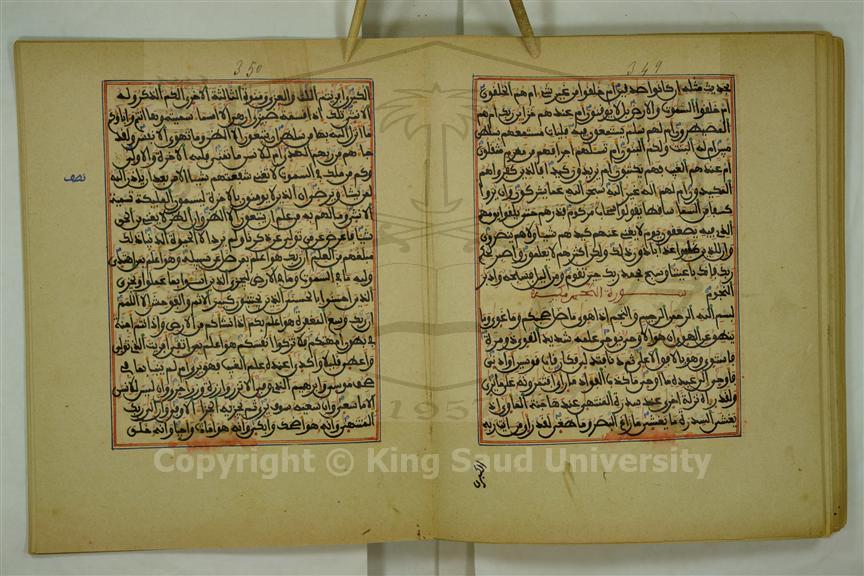 349
بحديث مثله إن كانوا صدقين أم خلقوا من غير شيء أم هم الخلقون
أم خلقوا السموت والأرض بل لا يوقنون أم عندهم خزائن ربك أم هم
المصيطرون أم لهم سلم يستمعون فيه فليأت مستمعهم بسلطن
مبين أم له البنت ولكم البنون أم تسئلهم أجرا فهم من مغرم مثقلون
أم عندهم الغيب فهم يكتبون أم يريدون كيدا فالذين كفروا هم
المكيدون أم لهم إله غير الله سبحن الله عما يشركون وإن يروا
كسفا من السماء ساقطا يقولوا سحاب مركوم فذرهم حتى يلقوا يومهم
الذي فيه يصعقون يوم لا يغني عنهم كيدهم شيئا ولا هم ينصرون
وإن للذين ظلموا عذابا دون ذلك ولكن أكثرهم لا يعلمون واصبر لحكم
ربك فإنك بأعيننا وسبح بحمد ربك حين تقوم ومن اليل فسبحه وإدبر
النجوم سورة النجم مكية
بسم الله الرحمن الرحيم والنجم إذا هوى ما ضل صحبكم وما غوى وما
ينطق عن الهوى إن هو إلا وحي يوحى علمه شديد القوى ذو مرة
فاستوى وهو بالأفق الأعلى ثم دنا فتدلى فكان قاب قوسين أو أدنى
فأوحى إلى عبده ما أوحى ما كذب الفؤاد ما رأى أفتمرونه على ما يرى
ولقد رءاه نزلة أخرى عند سدرة المنتهى عندها جنة المأوى إذ
يغشى السدرة ما يغشى ما زاغ البصر وما طغى لقد رأى من ءايت ربه
الكبرى
350
الكبرى أفرأيتم اللت والعزى ومنوة الثالثة الأخرى ألكم الذكر وله
الأنثى تلك إذا قسمة ضيزى إن هي إلا أسماء سميتموها أنتم وءاباؤكم
ما أنزل الله بها من سلطن إن يتبعون إلا الظن وما تهوى الأنفس ولقد
جاءهم من ربهم الهدى أم للإنسن ما تمنى فلله الآخرة والأولى
وكم من ملك في السموت لا تغني شفعتهم شيئا إلا من بعد أن يأذن الله
لمن يشاء ويرضى إن الذين لا يؤمنون بالآخرة ليسمون المليكة تسمية
الأنثى وما لهم به من علم إن يتبعون إلا الظن وإن الظن لا يغني من الحق
شيئا فأعرض عن من تولى عن ذكرنا ولم يرد إلا الحيوة الدنيا ذلك
مبلغهم من العلم إن ربك هو أعلم بمن ضل عن سبيله وهو أعلم بمن اهتدى
ولله ما في السموت وما في الأرض ليجزي الذين أسئوا بما عملوا ويجزي
الذين أحسنوا بالحسنى الذين يجتنبون كبئر الإثم والفوحش إلا اللمم
إن ربك وسع المغفرة هو أعلم بكم إذ أنشأكم من الأرض وإذ أنتم أجنة
في بطون أمهتكم فلا تزكوا أنفسكم هو أعلم بمن اتقى أفرأيت الذي تولى
وأعطى قليلا وأكدى أعنده علم الغيب فهو يرى أم لم ينبأ بما في
صحف موسى وإبرهيم الذي وفى ألا تزر وازرة وزر أخرى وأن ليس للإنسن
إلا ما سعى وأن سعيه سوف يرى ثم يجزيه الجزاء الأوفى وأن إلى ربك
المنتهى وأنه هو أضحك وأبكى وأنه هو أمات وأحيا وأنه خلق
نصف
1957
Copyright © King Saud University